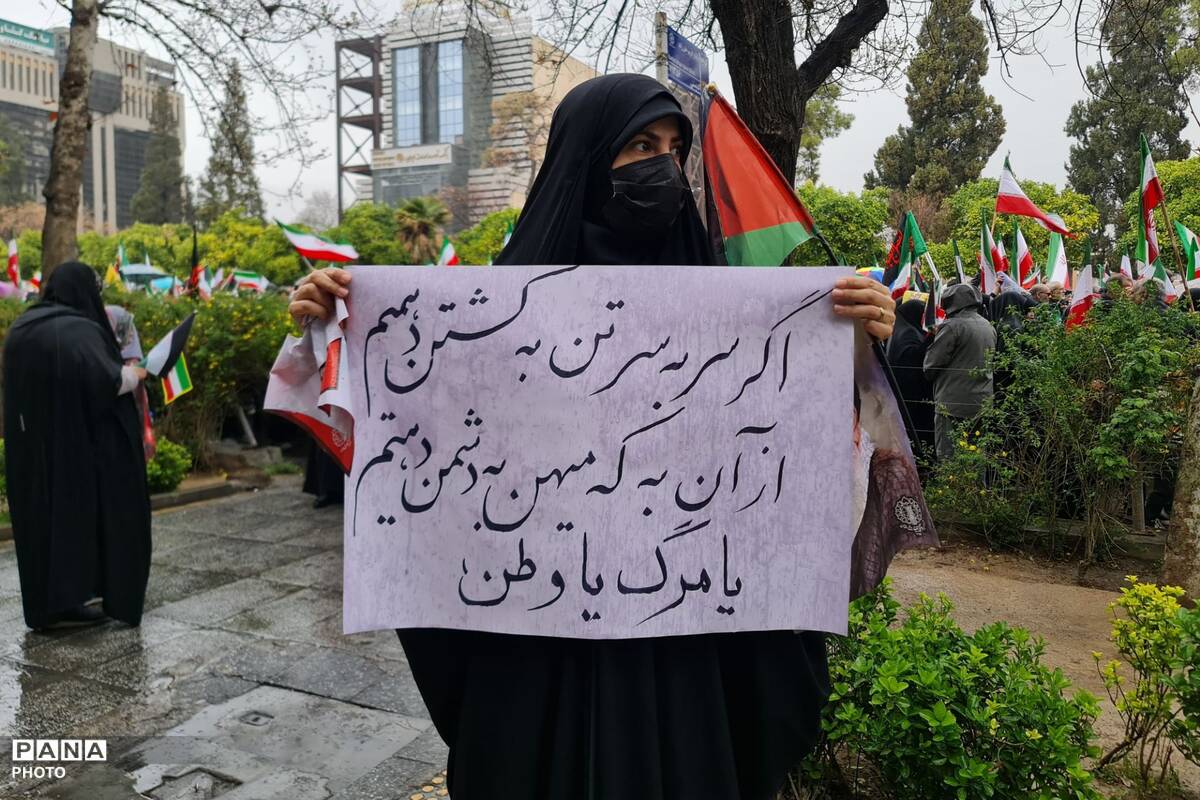 اگر سر به سر تن به کشتن دهیم
از آن به که میهن به دشمن دهیم
یا مرگ یا وطن
PANA
PHOTO